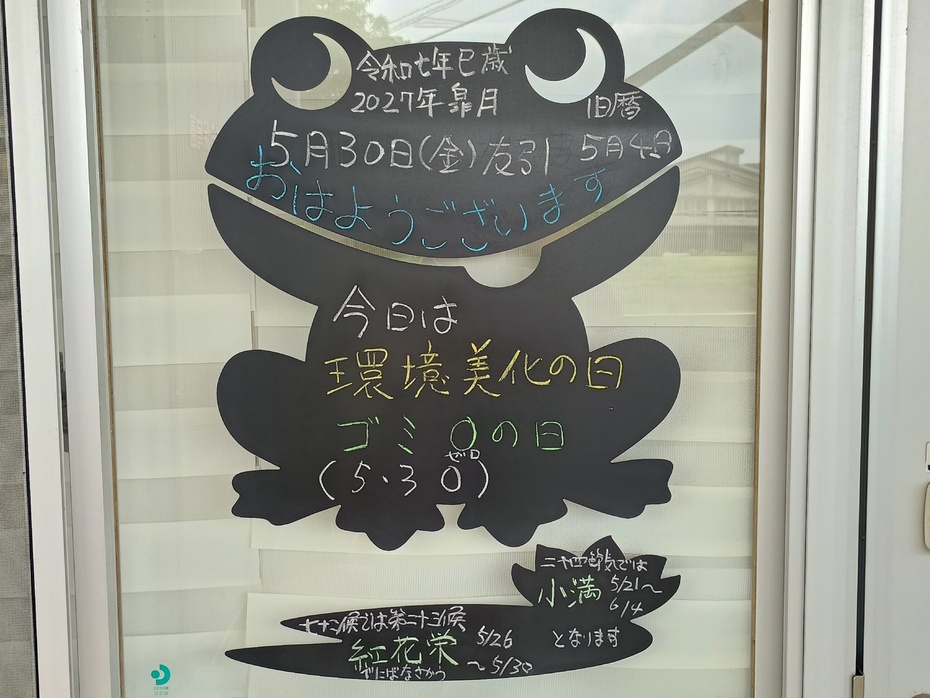 令和七年巳歳
2027年皐月
旧暦
5月30日(金)友引 5月4日
おはようございます
今日は
環境美化の日
ゴミ0の日
ゼロ
(5・3 0)
二十四節気では
小満 5/21〜
6/4
となります
七十二候では第二十三候
紅花栄 5/26
〜5/30
べにばなさかう